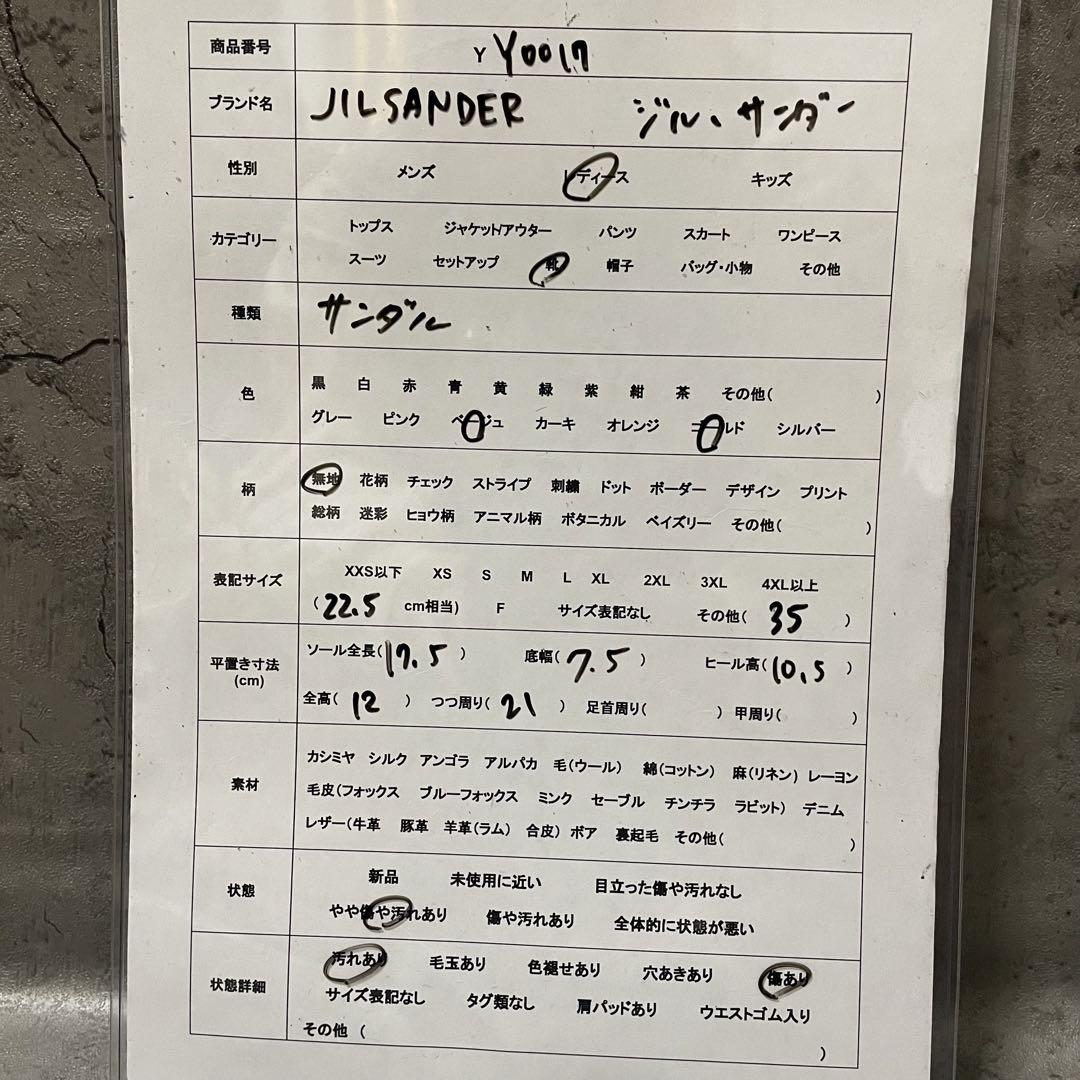 商品番号 Y Y0017
ブランド名 JILSANDER ジル、サンダー
性別 メンズ レディース キッズ
カテゴリー
トップス ジャケット/アウター パンツ スカート ワンピース
スーツ セットアップ 靴 帽子 バッグ・小物 その他
種類 サンダル
色
黒 白 赤 青 黄 緑 紫 紺 茶 その他( )
グレー ピンク ベージュ カーキ オレンジ ゴールド シルバー
柄
無地 花柄 チェック ストライプ 刺繍 ドット ボーダー デザイン プリント
総柄 迷彩 ヒョウ柄 アニマル柄 ボタニカル ペイズリー その他( )
表記サイズ
XXS以下 XS S M L XL 2XL 3XL 4XL以上
( 22.5 cm相当) F サイズ表記なし その他( 35 )
平置き寸法
(cm)
ソール全長( 17.5 ) 底幅( 7.5 ) ヒール高( 10.5 )
全高( 12 ) つつ周り( 21 ) 足首周り( ) 甲周り( )
素材
カシミヤ シルク アンゴラ アルパカ 毛(ウール) 綿(コットン) 麻(リネン) レーヨン
毛皮(フォックス ブルーフォックス ミンク セーブル チンチラ ラビット) デニム
レザー(牛革 豚革 羊革(ラム) 合皮) ボア 裏起毛 その他( )
状態
新品 未使用に近い 目立った傷や汚れなし
やや傷や汚れあり 傷や汚れあり 全体的に状態が悪い
状態詳細
汚れあり 毛玉あり 色褪せあり 穴あきあり 傷あり
サイズ表記なし タグ類なし 肩パッドあり ウエストゴム入り
その他 ( )